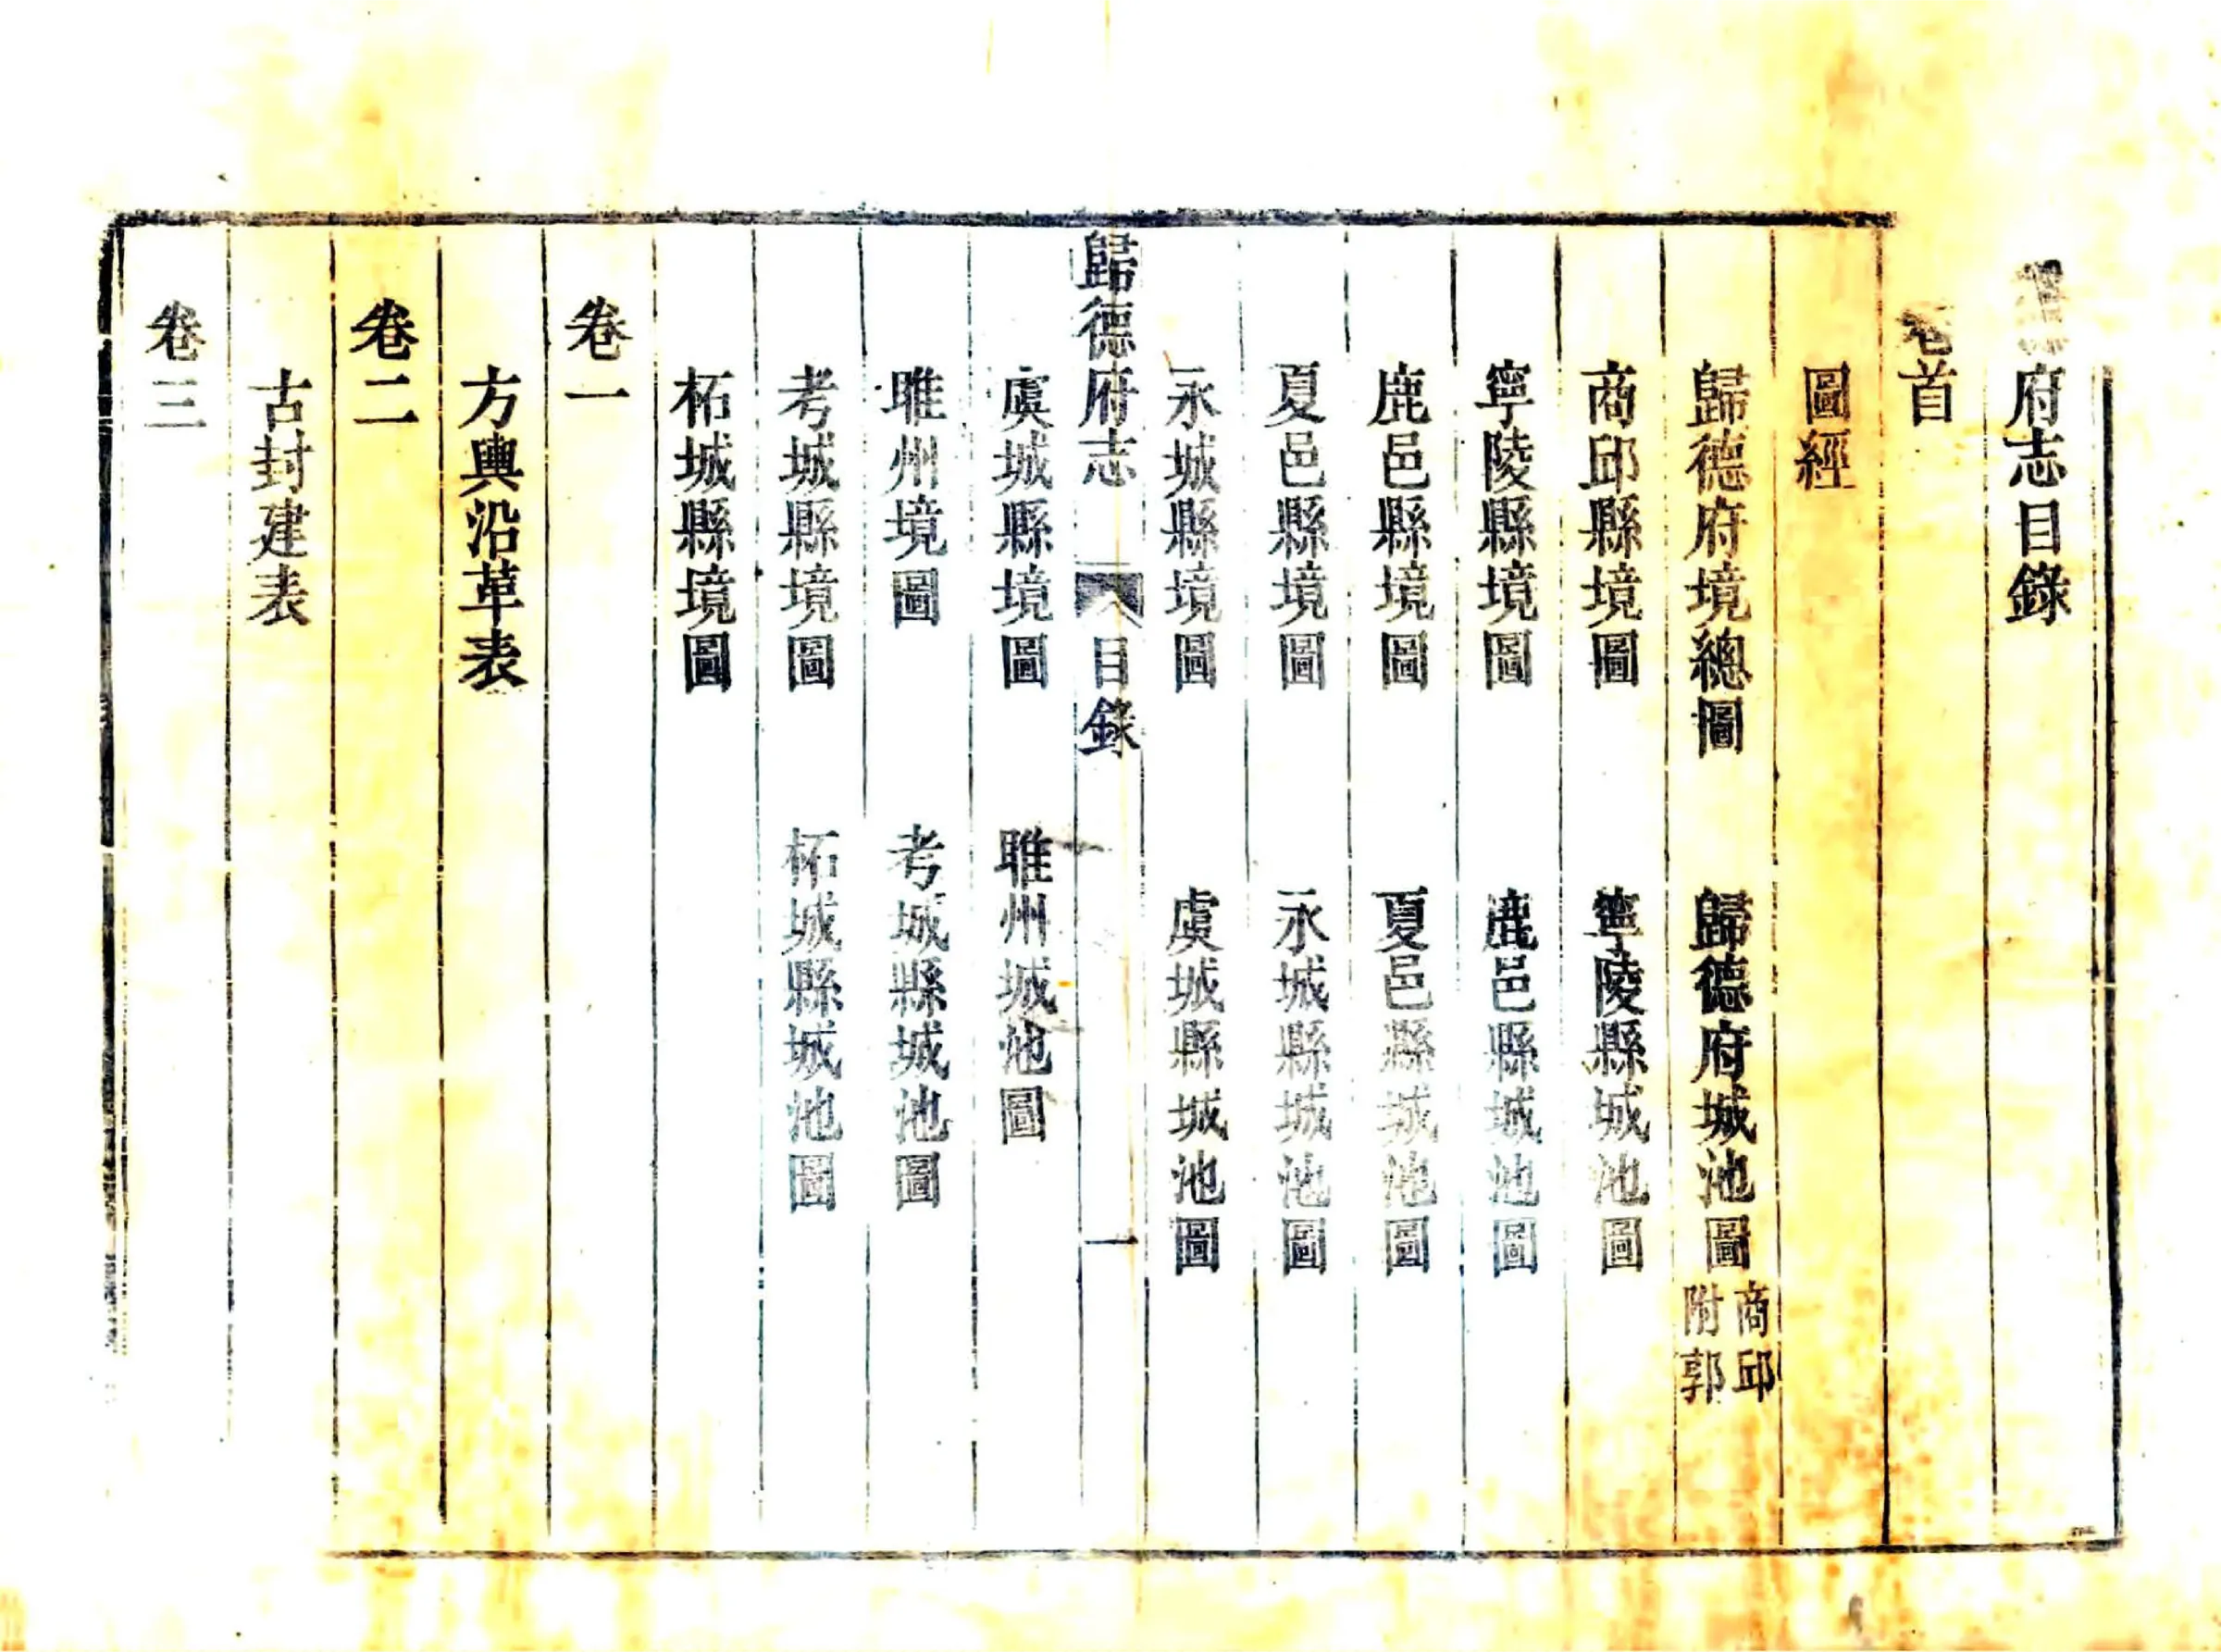 府志目錄
卷首
圖經
歸德府境總圖 歸德府城池圖 商邱附郭
商邱縣境圖 寧陵縣城池圖
寧陵縣境圖 鹿邑縣城池圖
鹿邑縣境圖 夏邑縣城池圖
夏邑縣境圖 永城縣城池圖
永城縣境圖 虞城縣城池圖
歸德府志 目錄 一
虞城縣境圖 睢州城池圖
睢州境圖 考城縣城池圖
考城縣境圖 柘城縣城池圖
柘城縣境圖
卷一
方輿沿革表
卷二
古封建表
卷三